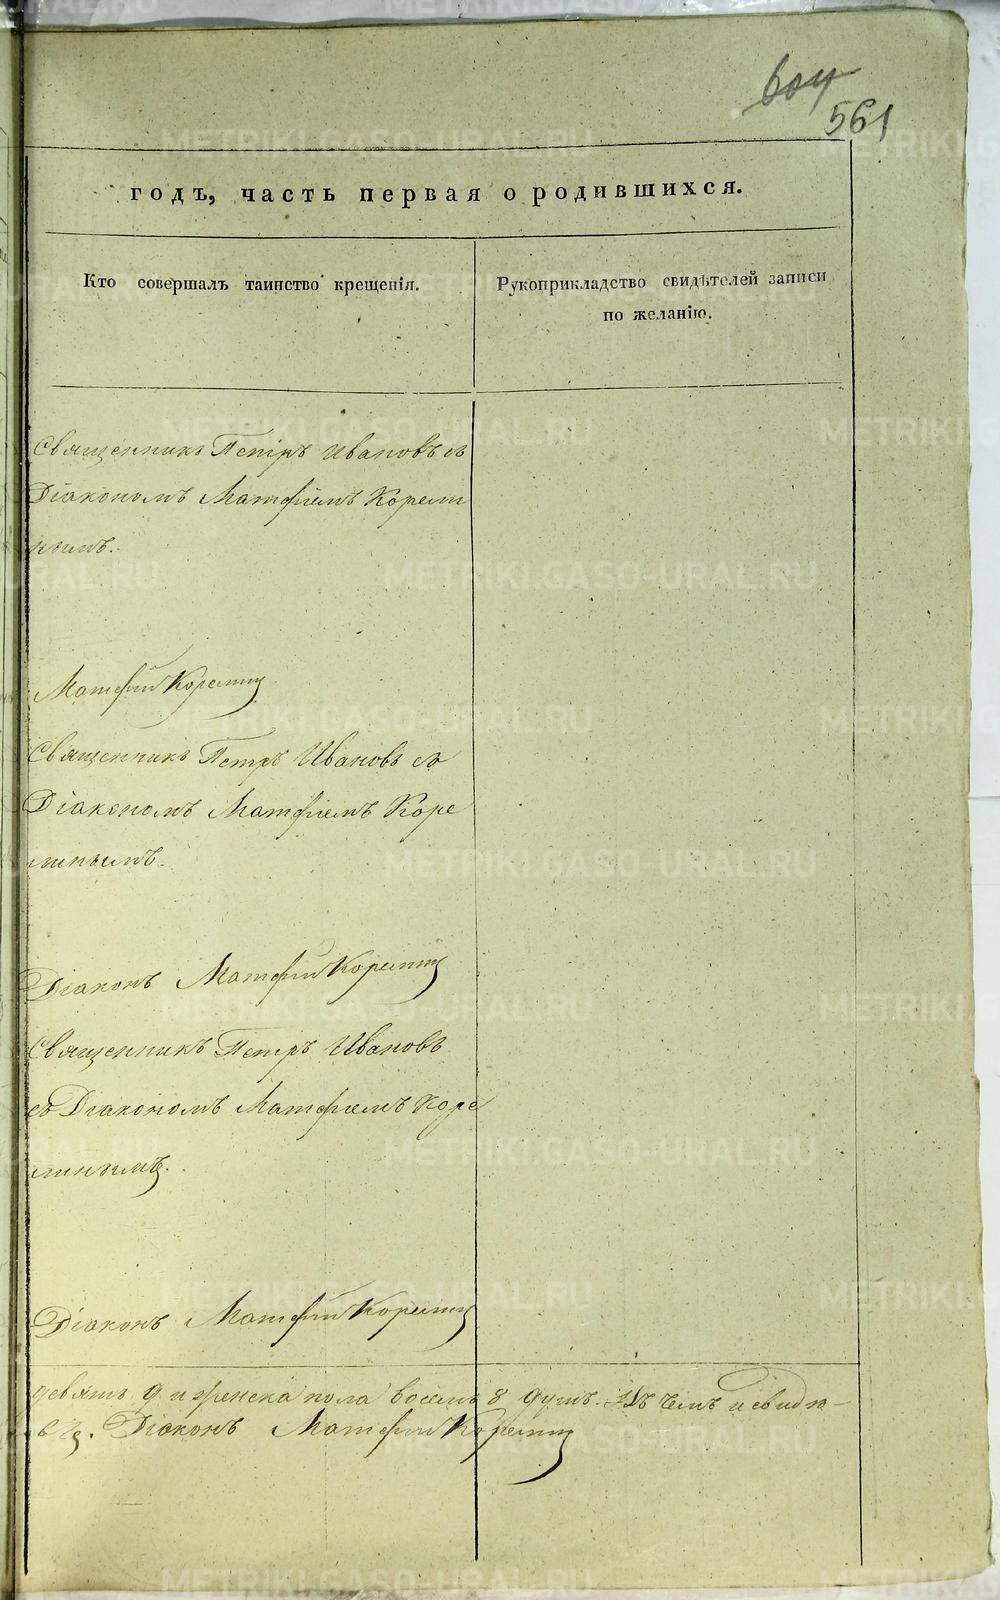 604
561
годъ, часть первая о родившихся.
Кто совершалъ таинство крещенія.
Рукоприкладство свидѣтелей записи
по желанію.
Священникъ Петръ Ивановъ съ
Діакономъ Матфіемъ Корели
нымъ.
Матфій Корелинъ
Священникъ Петръ Ивановъ съ
Діакономъ Матфіемъ Коре
линымъ.
Діаконъ Матфій Корелинъ
Священникъ Петръ Ивановъ
съ Діакономъ Матфіемъ Коре
линымъ.
Діаконъ Матфій Корелинъ
девять 9 и женска пола восемь 8 душъ. Въ чемъ и свидѣ-
Діаконъ Матфій Корелинъ
METRIKI.GASO-URAL.RU